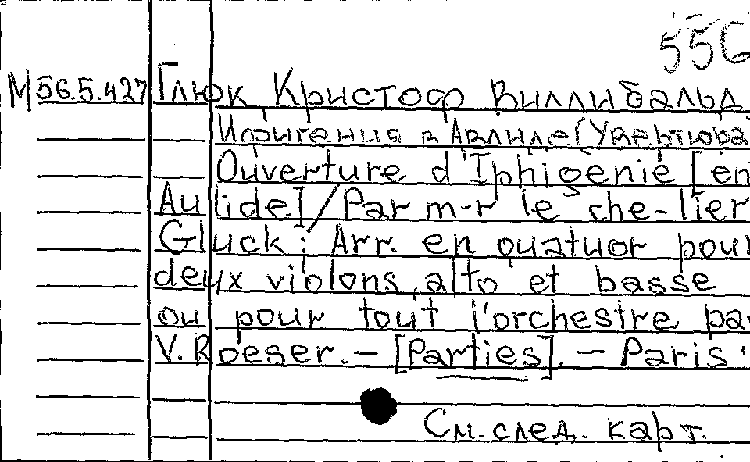 556
М 56.5.427 Глюк Кристоф Виллибальд
Ифигения в Авлиде [Увертюра
Ouverture d'Iphigenie [en
Aulide] / Par m-r le che-lier
Gluck ; Arr. en quatuor pour
deux violons, alto et basse
ou pour tout l'orchestre par
V. Roeser. — [Parties]. — Paris :
См. след. карт.